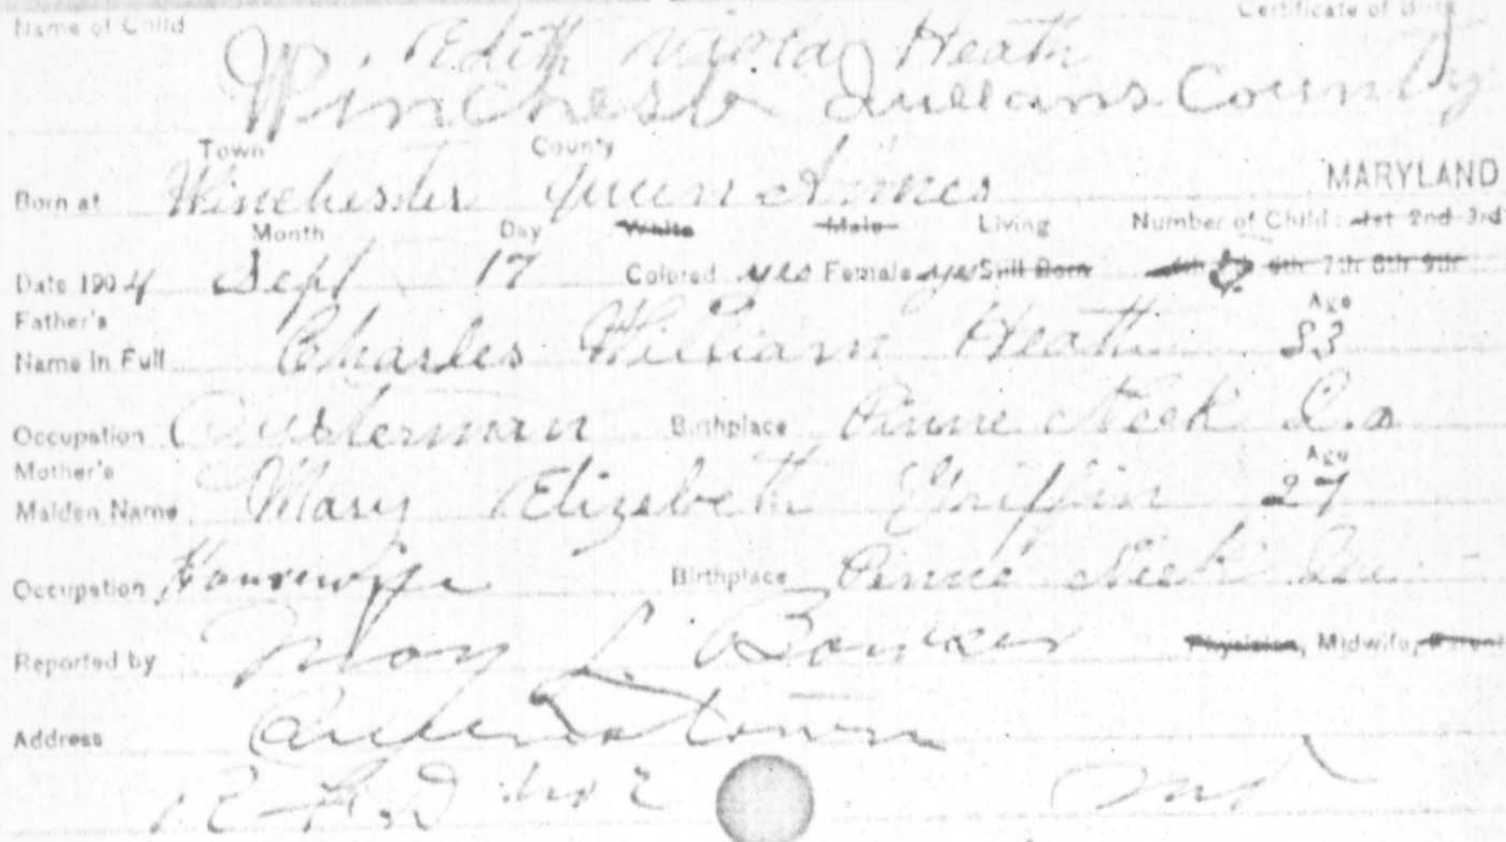 Name of Child Certificate of Birth
Edith Viola Heath
Winchester County
Town County
Born at Winchester Queen Annes MARYLAND
Month Day White Male Living Number of Child: 1st 2nd 3rd
Date 1904 Sept 17 Colored yes Female yes Still Born 4th 6th 7th 8th 9th
Father's Age
Name in Full Charles William Heath 33
Occupation Oysterman Birthplace Pinne Neck
Mother's Age
Maiden Name Mary Elizabeth Griffin 27
Occupation Housewife Birthplace Pinne Neck
Reported by Mary L. Bowser Physician, Midwife, Parent
Address Queenstown
R F D no 2 Md